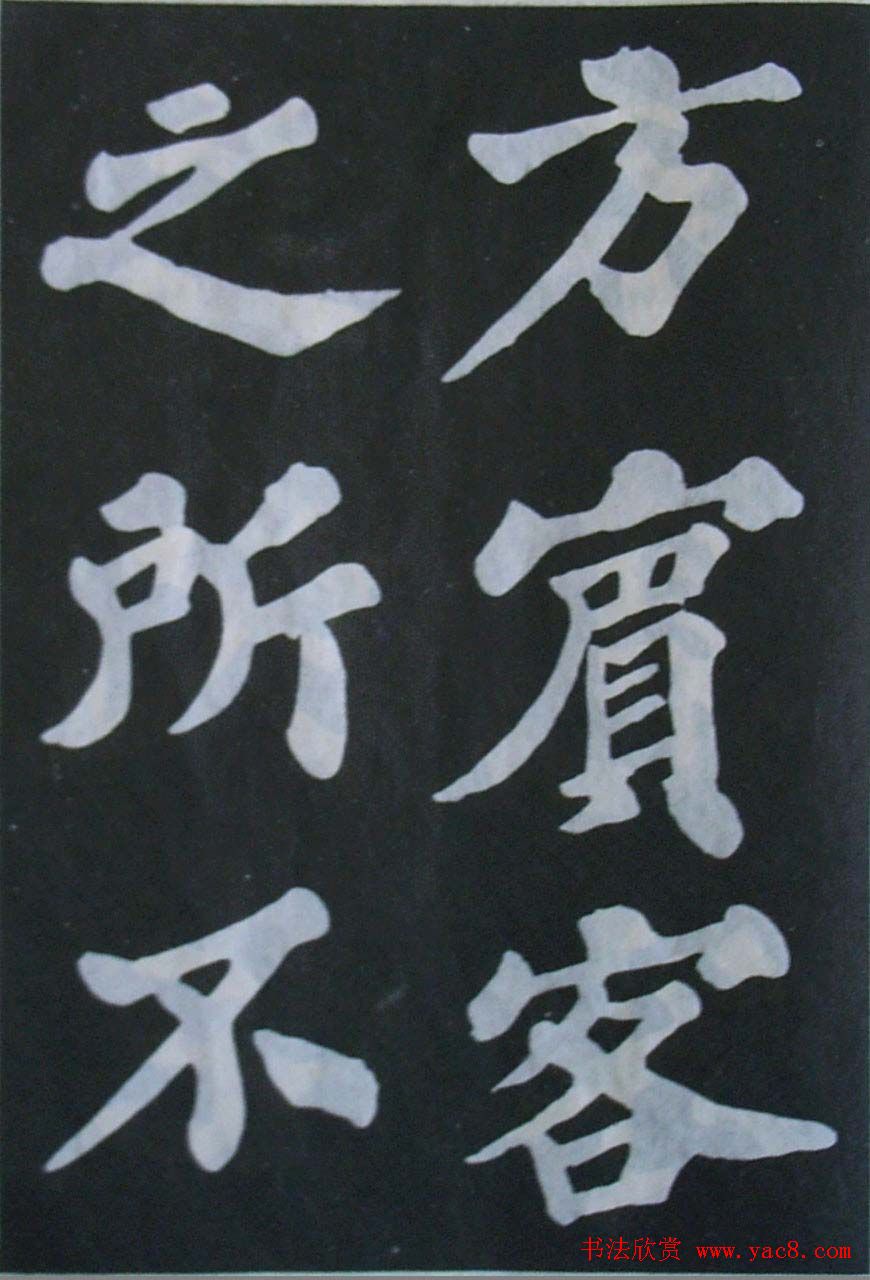 方賓客
之所不
书法欣赏 www.yac8.com